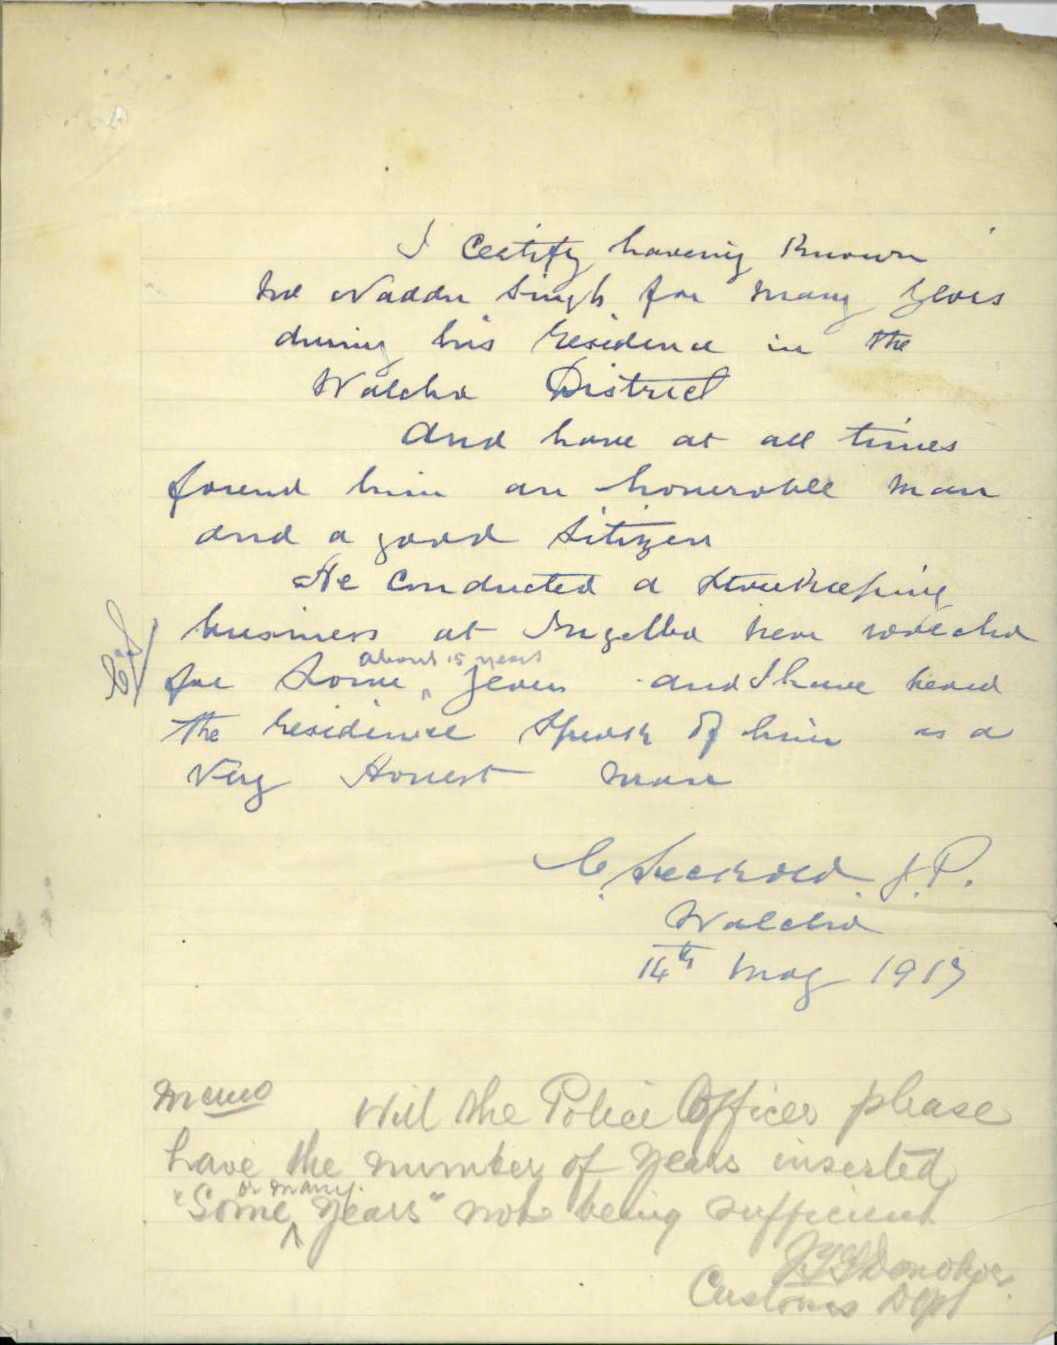 I Certify having Known
Mr Naddu Singh for many Years
during his Residence in the
Walcha District
And have at all times
found him an honerable man
and a good Sitizen
He Conducted a StoreKeeping
business at Ingelba near Walcha
about 15 years
for Some ^ Years and I have heard
the Residence Speak of him as a
Very Honest man
J.P.
Walcha
14th May 1917
Memo Will the Police Officer please
have the number of years inserted
or many
"Some ^ years" not being sufficient
Donohoe
Customs Dept